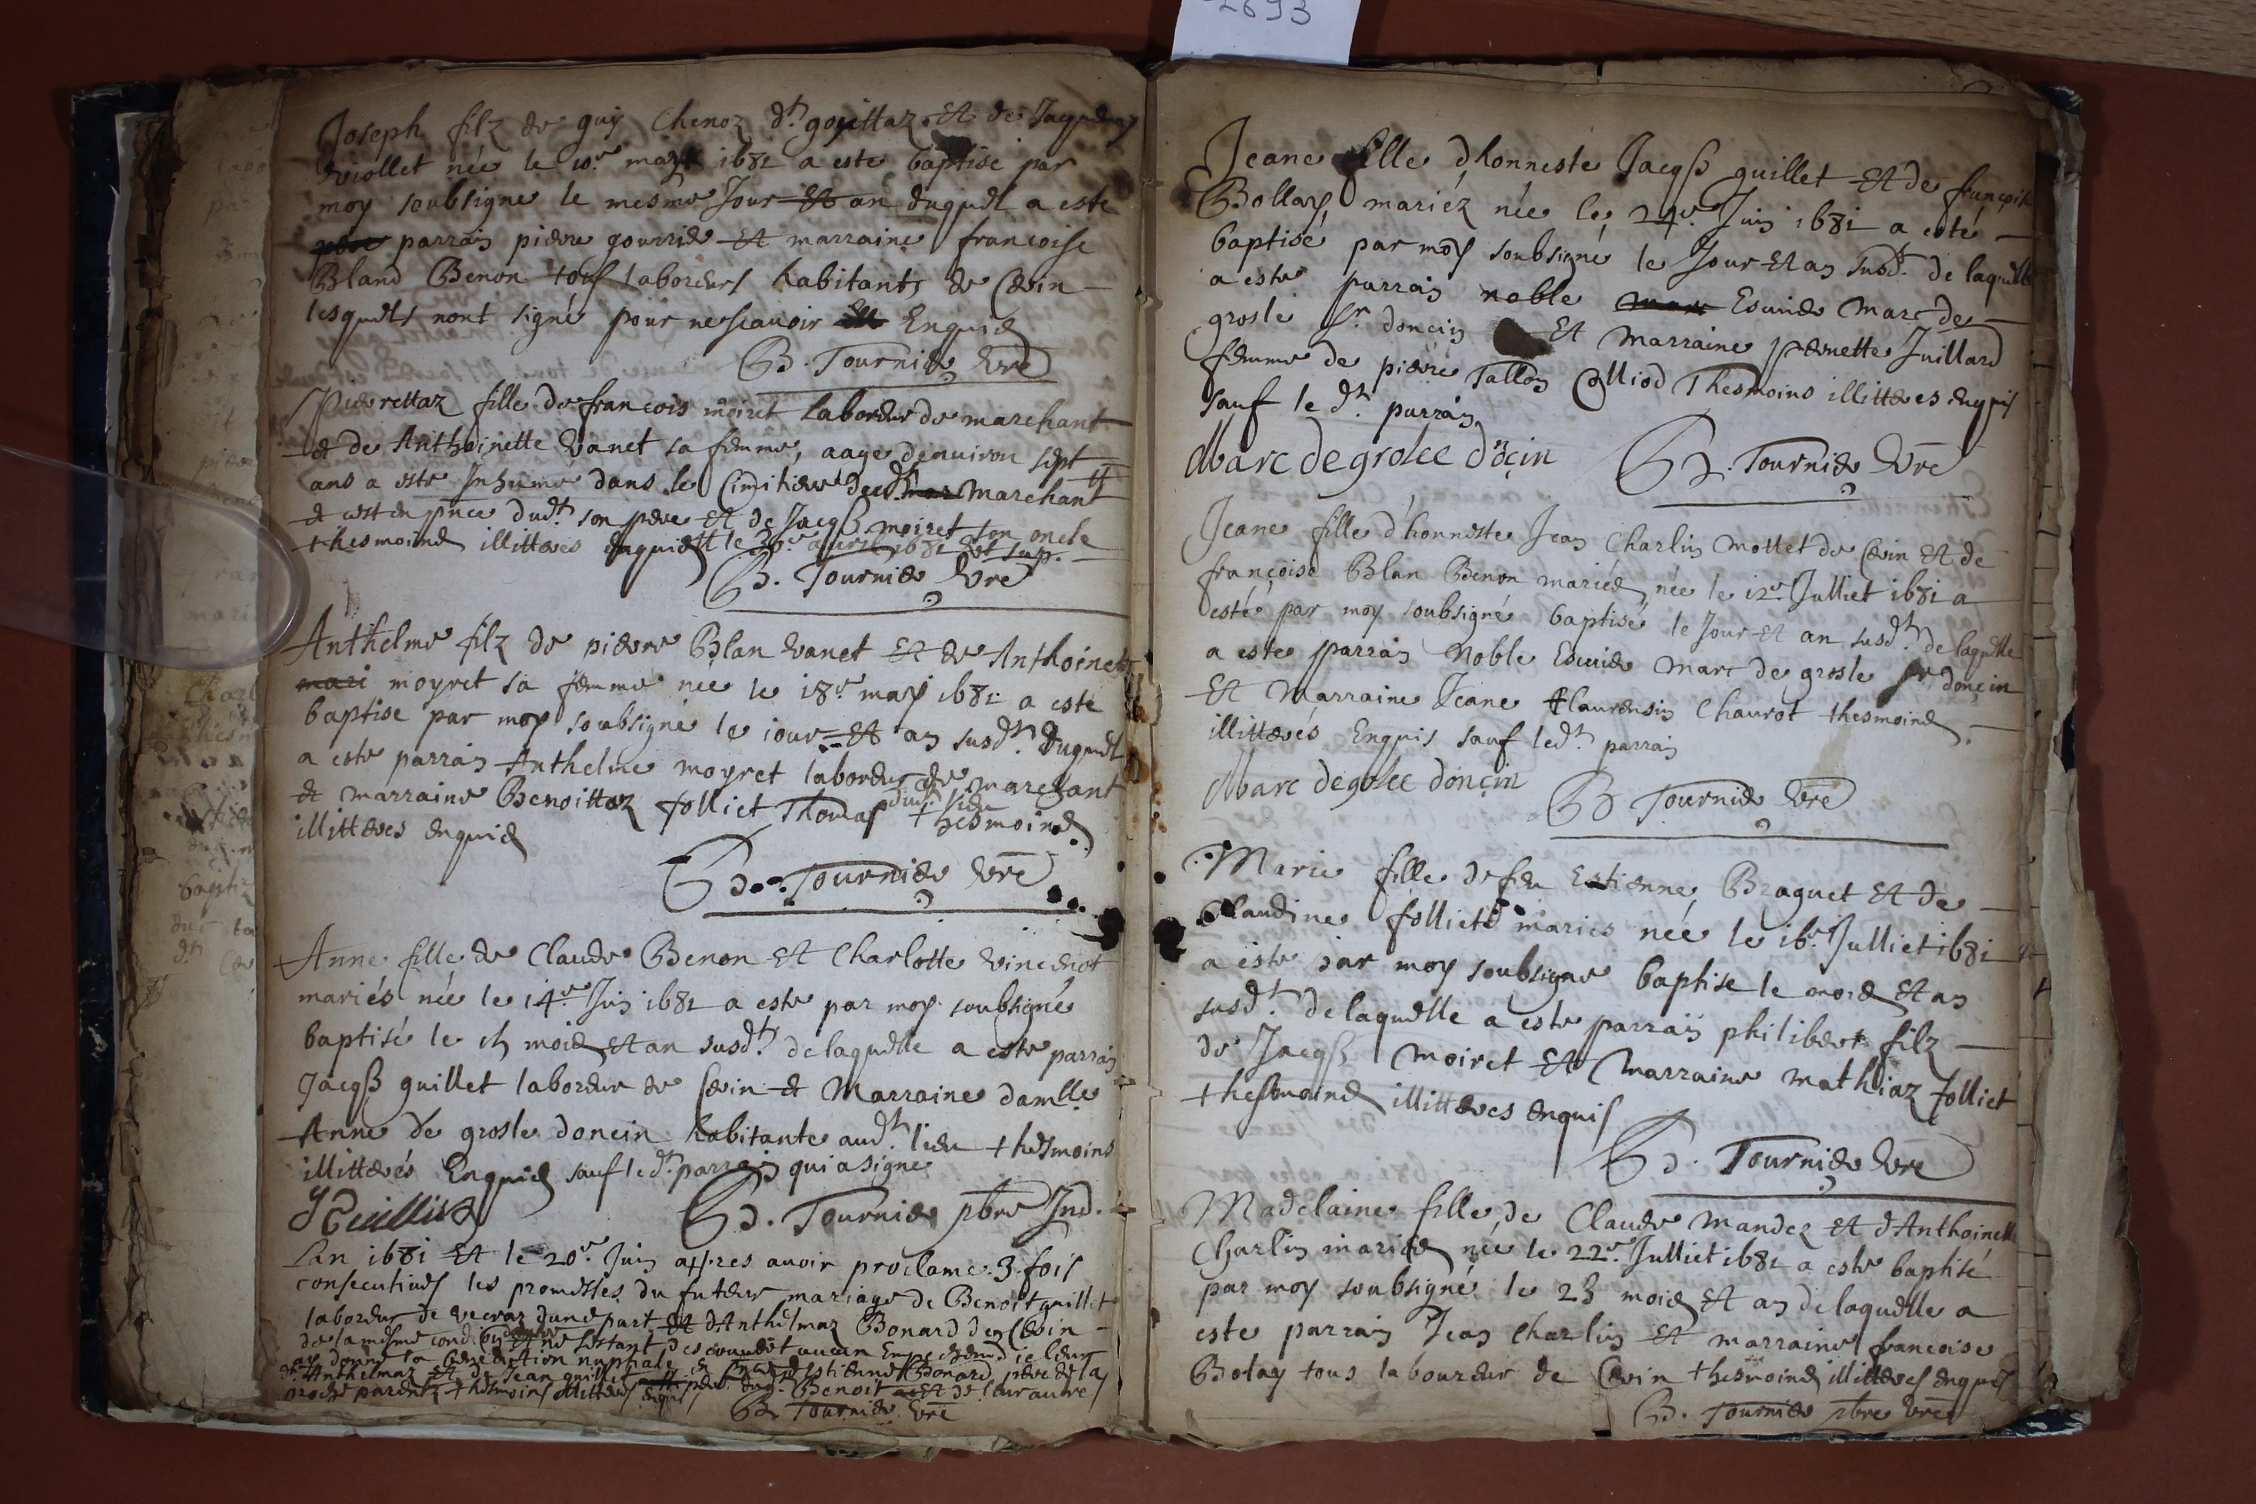 2693
Joseph filz de guy Chenoz dt. gouittaz Et de Jaquemaz
viollet née le 10e may 1681 a este baptisé par
moy soubsigne le mesme Jour Et an duquel a este
parrain pierre gourrier Et marraine francoise
Bland Benon tous laboreurs habitants de Cevin
lesquels nont signé pour ne scavoir Enquis
B. Tournier Vre
Pierrettaz fille de francois moiret laboreur de marchant
et de Anthoinette Vanet sa femme, aagé denviron sept
ans a este Inhumé dans le Cimitiere dud. marchant
et cest en pnce dud.t son pere Et de Jacqs moiret son oncle
thesmoins illitteres Enquis le 30e avril 1681
B. Tournier Vre
Anthelme filz de pierre Blan vanet Et de Anthoinette
moyret sa femme née le 18e may 1681 a este
baptise par moy soubsigné le iour Et an susd.t Duquel
a este parrain Anthelme moyret laboreur de marchant
et marraine Benoittaz folliet Thomas dud. lieu thesmoins
illitteres enquis
B. Tournier Vre
Anne fille de Claude Benon Et Charlotte vincenot
mariés née le 14e Juin 1681 a este par moy soubsigné
baptisé le moies Et an susd.t de laquelle a este parrain
Jacqs guillet laboreur de Cevin et Marraine damlle
Anne de grosle doncin habitante aud.t lieu thesmoins
illitterés Enquis sauf le d.t parrain qui a signé
B. Tournier pbre Ind.
Lan 1681 Et le 20e Juin apres avoir proclame 3 fois
consecutives les promesses du futeur mariage de Benoit guillet
laboreur de dune part Et dAnthelmaz Bonard de Cevin
de la mesme condition ne sestant descouvert aucun Empechement ie leur
ay donné la benediction nuptiale en pnce dEstienne Bonard pere de la
d.t Anthelmaz Et de Jean guillet pere dud. Benoit Et de leur autres
proche parents thesmoins illitteres enquis
B. Tournier Vre
Jeane fille dhonneste Jacqs guillet Et de françoise
Bollay mariéz née le 24e Juin 1681 a esté
baptisé par moy soubsigné le Jour Et an susd.t de laquelle
a este parrain noble Escuier Marc de
grosle Sr doncin Et Marraine pernette Juillard
femme de pierre Tallon Colliod Thesmoins illitteres enquis
sauf le d.t parrain
Marc de grolee dôçin B. Tournier Vre
Jeane fille d'honneste Jean Charlin mottet de Cevin Et de
françoise Blan Benon mariés née le 12e Julliet 1681 a
esté par moy soubsigné baptisé le Jour Et an susd.t de laquelle
a este parrain Noble Escuier Marc de grosle Sr donçin
Et Marraine Jeane flaurensin Chavrot thesmoins
illitterés Enquis sauf led.t parrain
Marc de grolee donçin B Tournier Vre
Marie fille de feu Estienne Braguet Et de
Claudine folliet mariés née le 16e Julliet 1681
a este par moy soubsigne baptise le mois Et an
susd.t de laquelle a este parrain philibert filz
de Jacqs Moiret Et Marraine mathiaz folliet
thesmoins illitteres enquis
B. Tournier Vre
Madelaine fille de Claude Mandez Et dAnthoinette
Charlin mariés née le 22e Julliet 1681 a este baptisé
par moy soubsigné le 23 mois Et an de laquelle a
este parrain Jean Charlin Et marraine francoise
Bolay tous laboureur de Cevin thesmoins illitteres enquis
B. Tournier pbre Vre